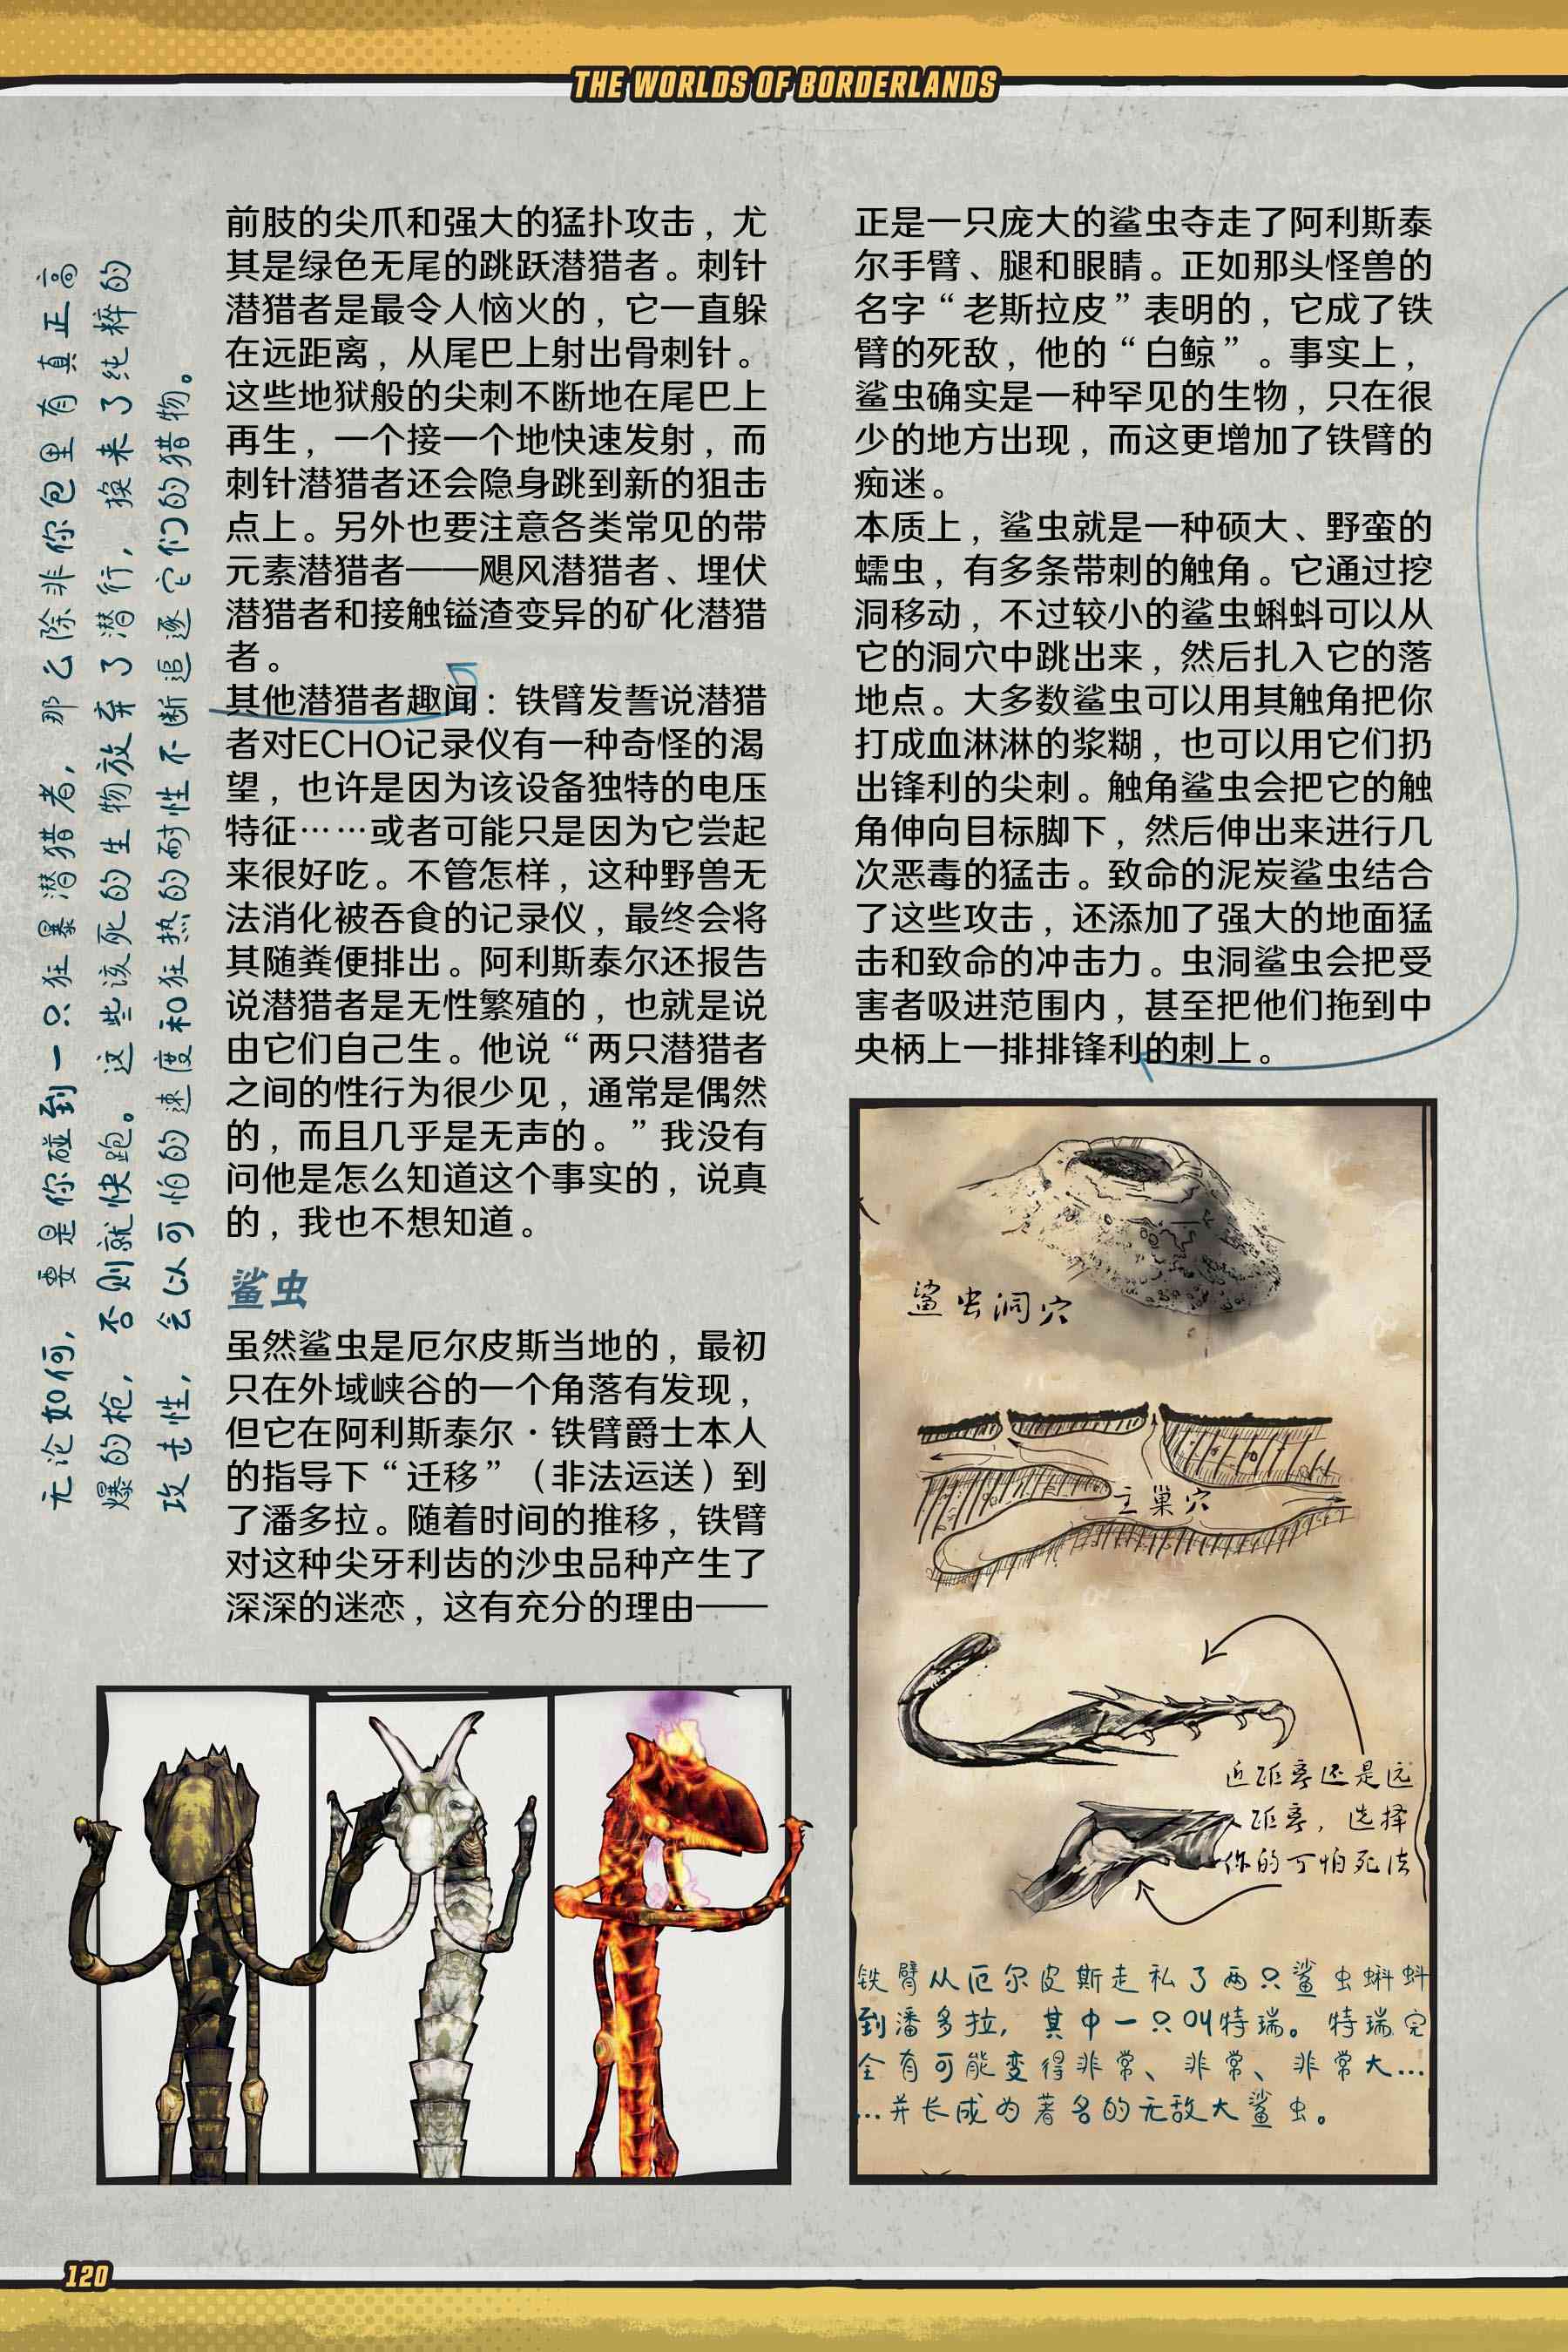 THE WORLDS OF BORDERLANDS
无论如何，要是你碰到一只狂暴潜猎者，那么除非你包里有真正高
爆的枪，否则就快跑。这些该死的生物放弃了潜行，换来了纯粹的
攻击性，会以可怕的速度和狂热的耐性不断追逐它们的猎物。
前肢的尖爪和强大的猛扑攻击，尤
其是绿色无尾的跳跃潜猎者。刺针
潜猎者是最令人恼火的，它一直躲
在远距离，从尾巴上射出骨刺针。
这些地狱般的尖刺不断地在尾巴上
再生，一个接一个地快速发射，而
刺针潜猎者还会隐身跳到新的狙击
点上。另外也要注意各类常见的带
元素潜猎者——飓风潜猎者、埋伏
潜猎者和接触镒渣变异的矿化潜猎
者。
其他潜猎者趣闻：铁臂发誓说潜猎
者对ECHO记录仪有一种奇怪的渴
望，也许是因为该设备独特的电压
特征……或者可能只是因为它尝起
来很好吃。不管怎样，这种野兽无
法消化被吞食的记录仪，最终会将
其随粪便排出。阿利斯泰尔还报告
说潜猎者是无性繁殖的，也就是说
由它们自己生。他说“两只潜猎者
之间的性行为很少见，通常是偶然
的，而且几乎是无声的。”我没有
问他是怎么知道这个事实的，说真
的，我也不想知道。
鲨虫
虽然鲨虫是厄尔皮斯当地的，最初
只在外域峡谷的一个角落有发现，
但它在阿利斯泰尔·铁臂爵士本人
的指导下“迁移”（非法运送）到
了潘多拉。随着时间的推移，铁臂
对这种尖牙利齿的沙虫品种产生了
深深的迷恋，这有充分的理由——
正是一只庞大的鲨虫夺走了阿利斯泰
尔手臂、腿和眼睛。正如那头怪兽的
名字“老斯拉皮”表明的，它成了铁
臂的死敌，他的“白鲸”。事实上，
鲨虫确实是一种罕见的生物，只在很
少的地方出现，而这更增加了铁臂的
痴迷。
本质上，鲨虫就是一种硕大、野蛮的
蠕虫，有多条带刺的触角。它通过挖
洞移动，不过较小的鲨虫蝌蚪可以从
它的洞穴中跳出来，然后扎入它的落
地点。大多数鲨虫可以用其触角把你
打成血淋淋的浆糊，也可以用它们扔
出锋利的尖刺。触角鲨虫会把它的触
角伸向目标脚下，然后伸出来进行几
次恶毒的猛击。致命的泥炭鲨虫结合
了这些攻击，还添加了强大的地面猛
击和致命的冲击力。虫洞鲨虫会把受
害者吸进范围内，甚至把他们拖到中
央柄上一排排锋利的刺上。
鲨虫洞穴
主巢穴
近距离还是远
距离，选择
你的可怕死法
铁臂从厄尔皮斯走私了两只鲨虫蝌蚪
到潘多拉，其中一只叫特瑞。特瑞完
全有可能变得非常、非常、非常大…
…并长成为著名的无敌大鲨虫。
120